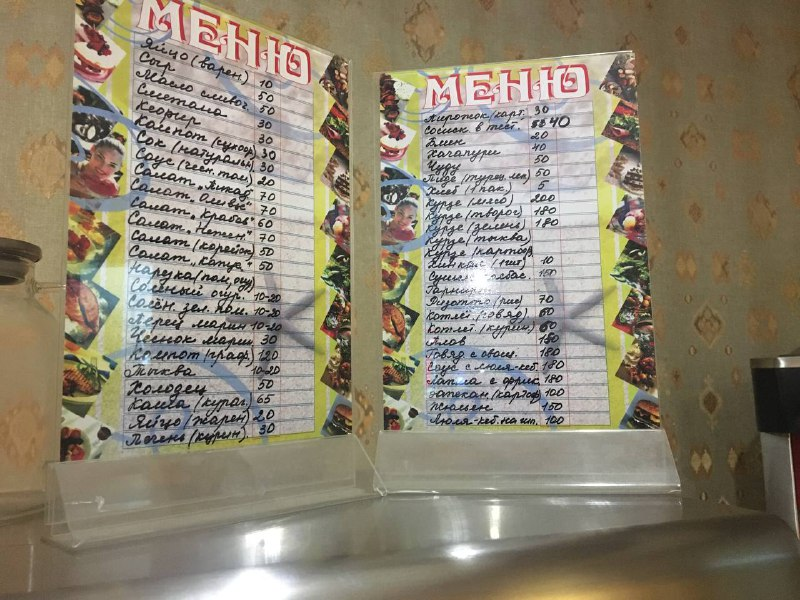 МЕНЮ
Яйцо (варен) 10
Сыр 50
Масло сливоч. 50
Сметана 30
Кефир 30
Компот (сухоф) 30
Сок (натуральн) 30
Соус (ческ. том) 20
Салат 70
Салат „Оливье" 70
Салат „Крабов" 60
Салат „Нежен" 70
Салат (корейск) 50
Салат „Капус" 50
Нарезка (пом, огур)
Соленый огур. 10-20
Солён. зел. пом. 10-20
Перец марин 10-20
Чеснок марин 30
Компот (граф) 120
Тыква 10-20
Холодец 50
Каша (кураг) 65
Яйцо (жарен) 20
Печень (курин) 30
МЕНЮ
Пирожок (карт. 30
Сосиск в тест. 40
Блин 20
Хачапури 40
Чуду 50
Пиде (турец. леп) 50
Хлеб (1 пак) 5
Курзе (мясо) 200
Курзе (творог) 180
Курзе (зелень) 180
Курзе (тыква)
Курзе (картоф)
Хинкал (1 шт) 10
Сушен. колбас. 150
Гарниры
Ризотто (рис) 70
Котлет (говяд) 60
Котлет (курин) 60
Плов 180
Говяд с овощ. 180
Соус с люля-кеб. 180
Лапша с фрик. 180
Запекан (картоф) 100
Жюльен 150
Люля-кеб. на шп. 100